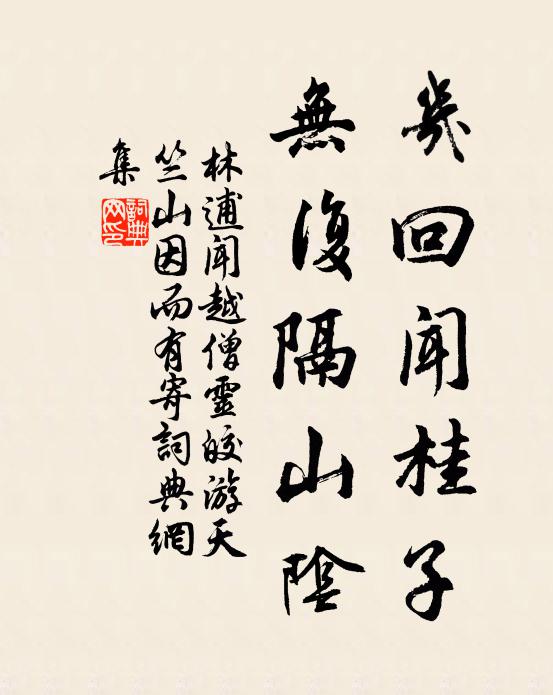 幾回闻桂子
無復隔山陰
林逋闻越僧靈皎游天
竺山因而有寄詞典網
集
詞典網印